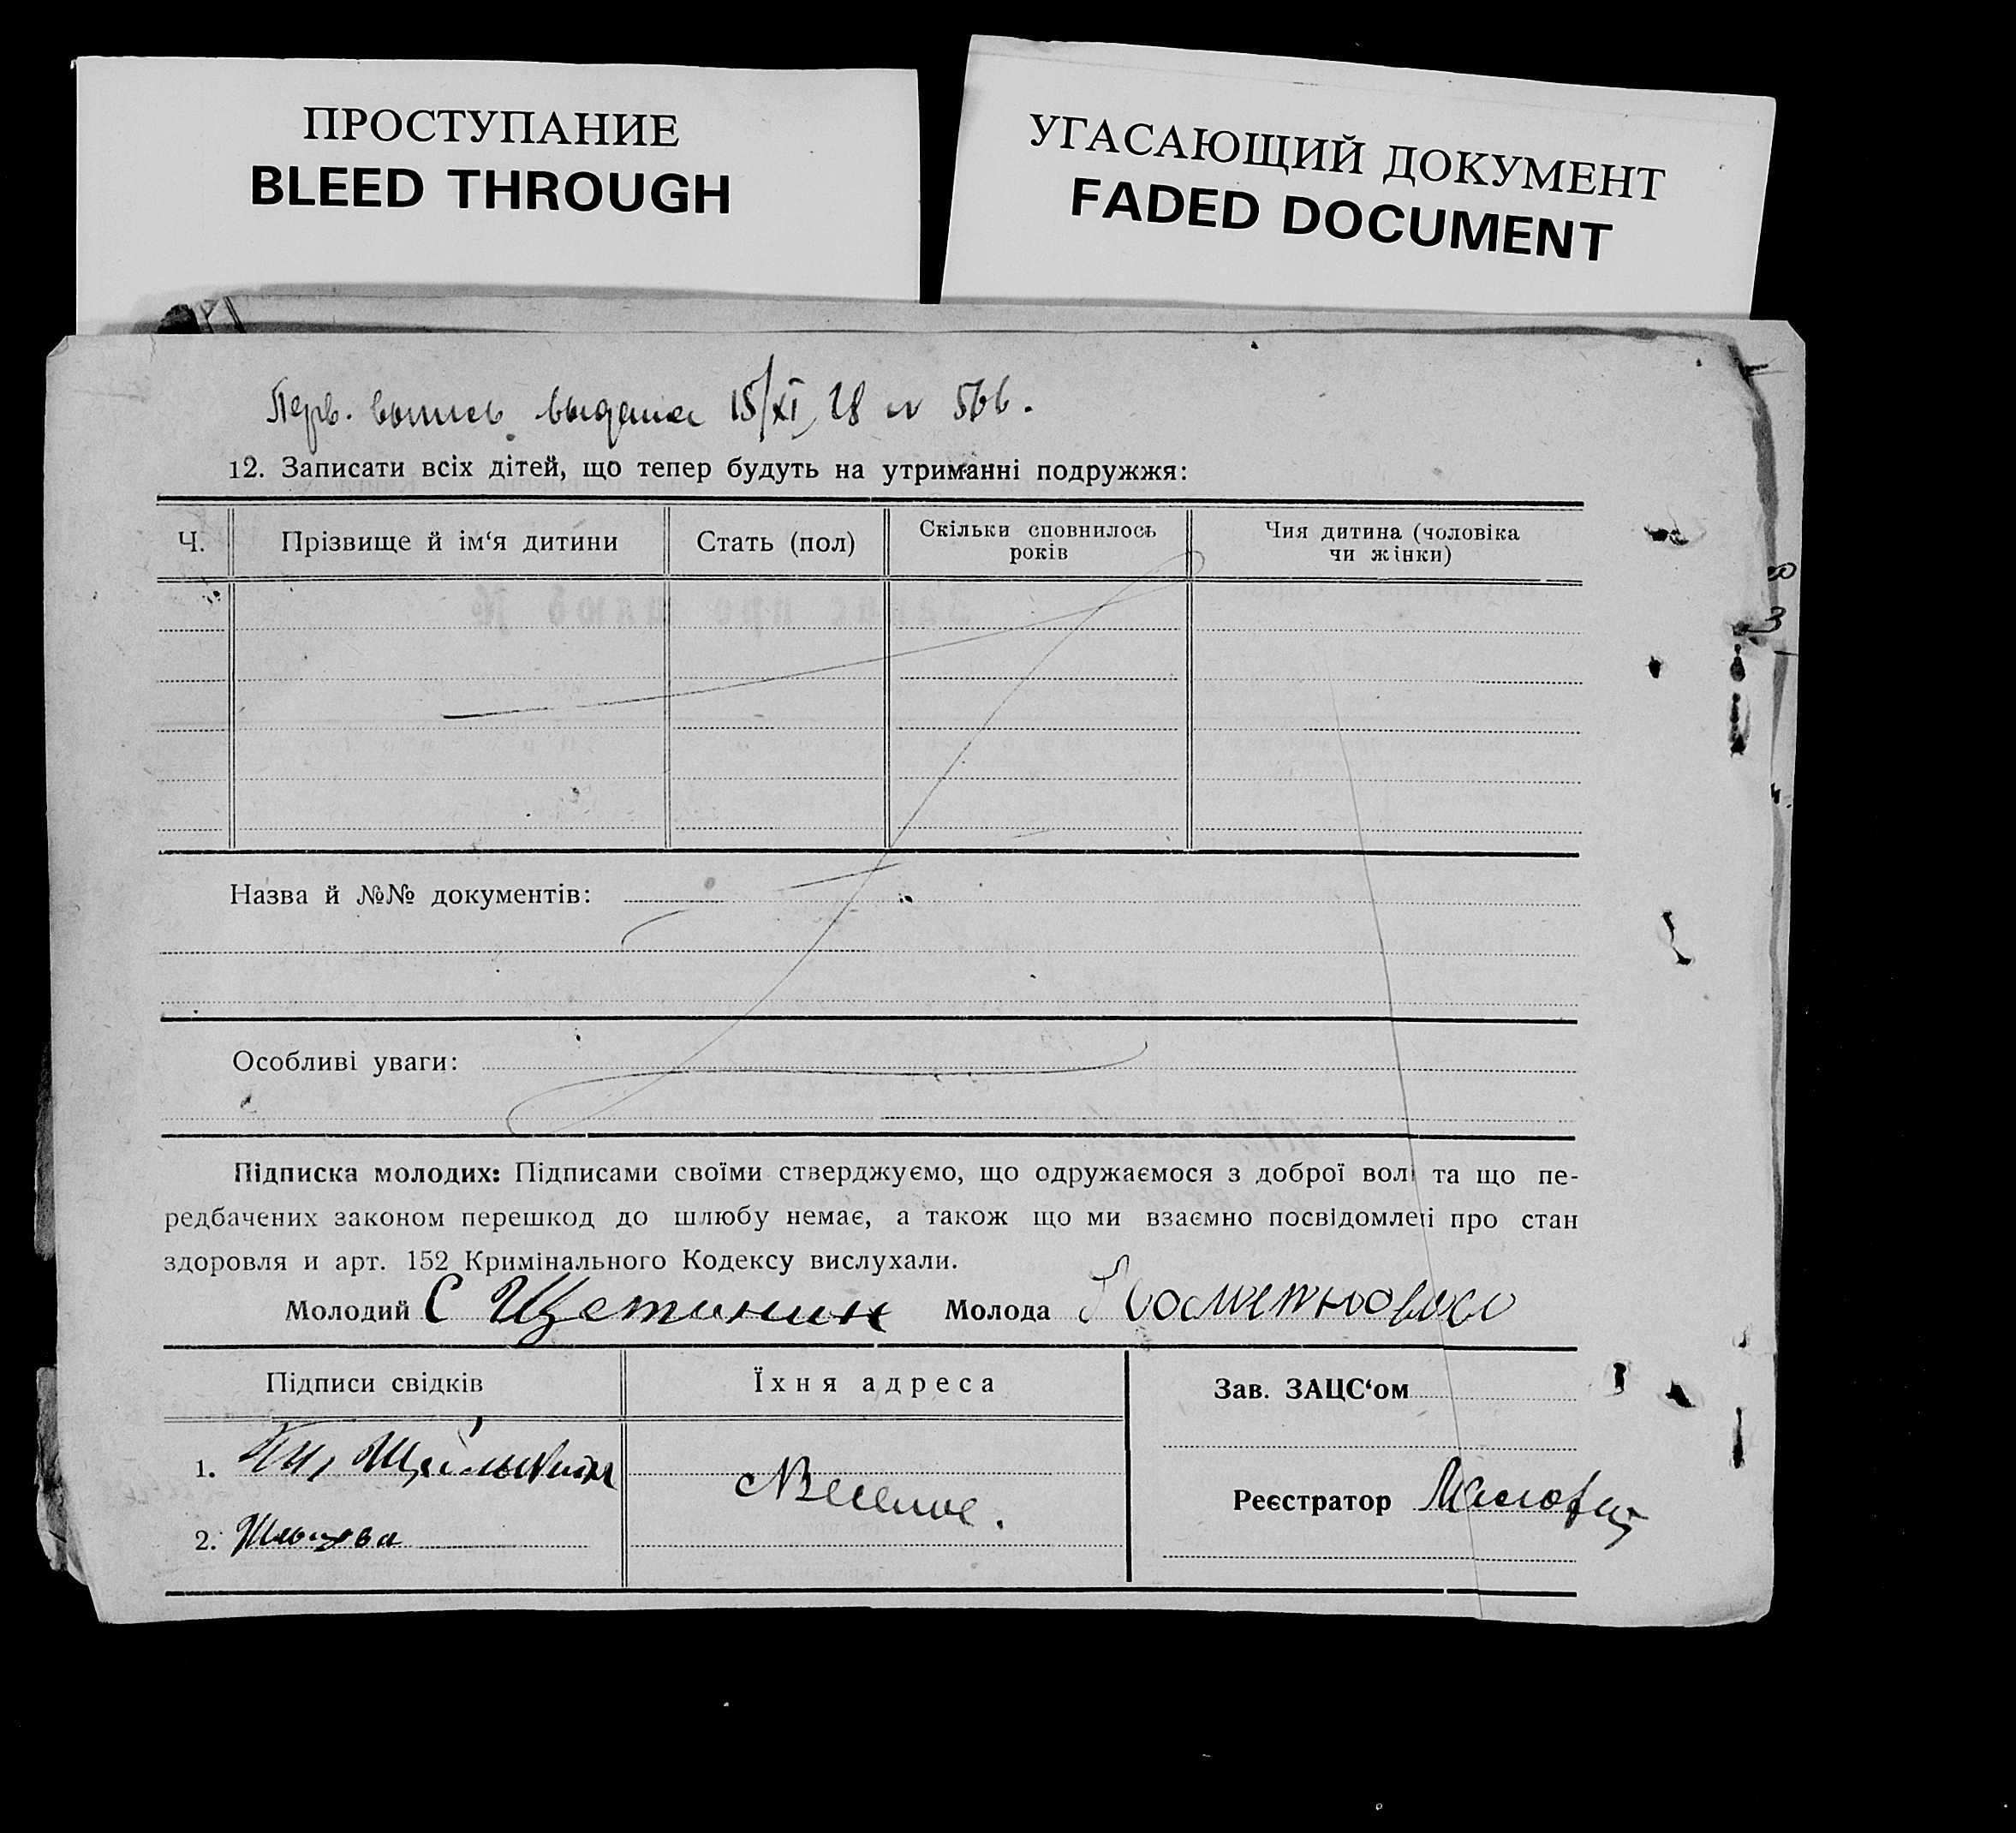 ПРОСТУПАНИЕ
BLEED THROUGH
УГАСАЮЩИЙ ДОКУМЕНТ
FADED DOCUMENT
Перв. выпись выдана 15/XI 28 № 566.
12. Записати всіх дітей, що тепер будуть на утриманні подружжя:
Ч. Прізвище й ім‘я дитини Стать (пол) Скільки сповнилось років Чия дитина (чоловіка чи жінки)
8
3
Назва й №№ документів:
Особливі уваги:
Підписка молодих: Підписами своїми стверджуємо, що одружаємося з доброї волі та що пе-
редбачених законом перешкод до шлюбу немає, а також що ми взаємно посвідомлені про стан
здоровля и арт. 152 Кримінального Кодексу вислухали.
Молодий С Щетинин Молода
Підписи свідків Їхня адреса Зав. ЗАЦС‘ом
1.
Реєстратор
2.